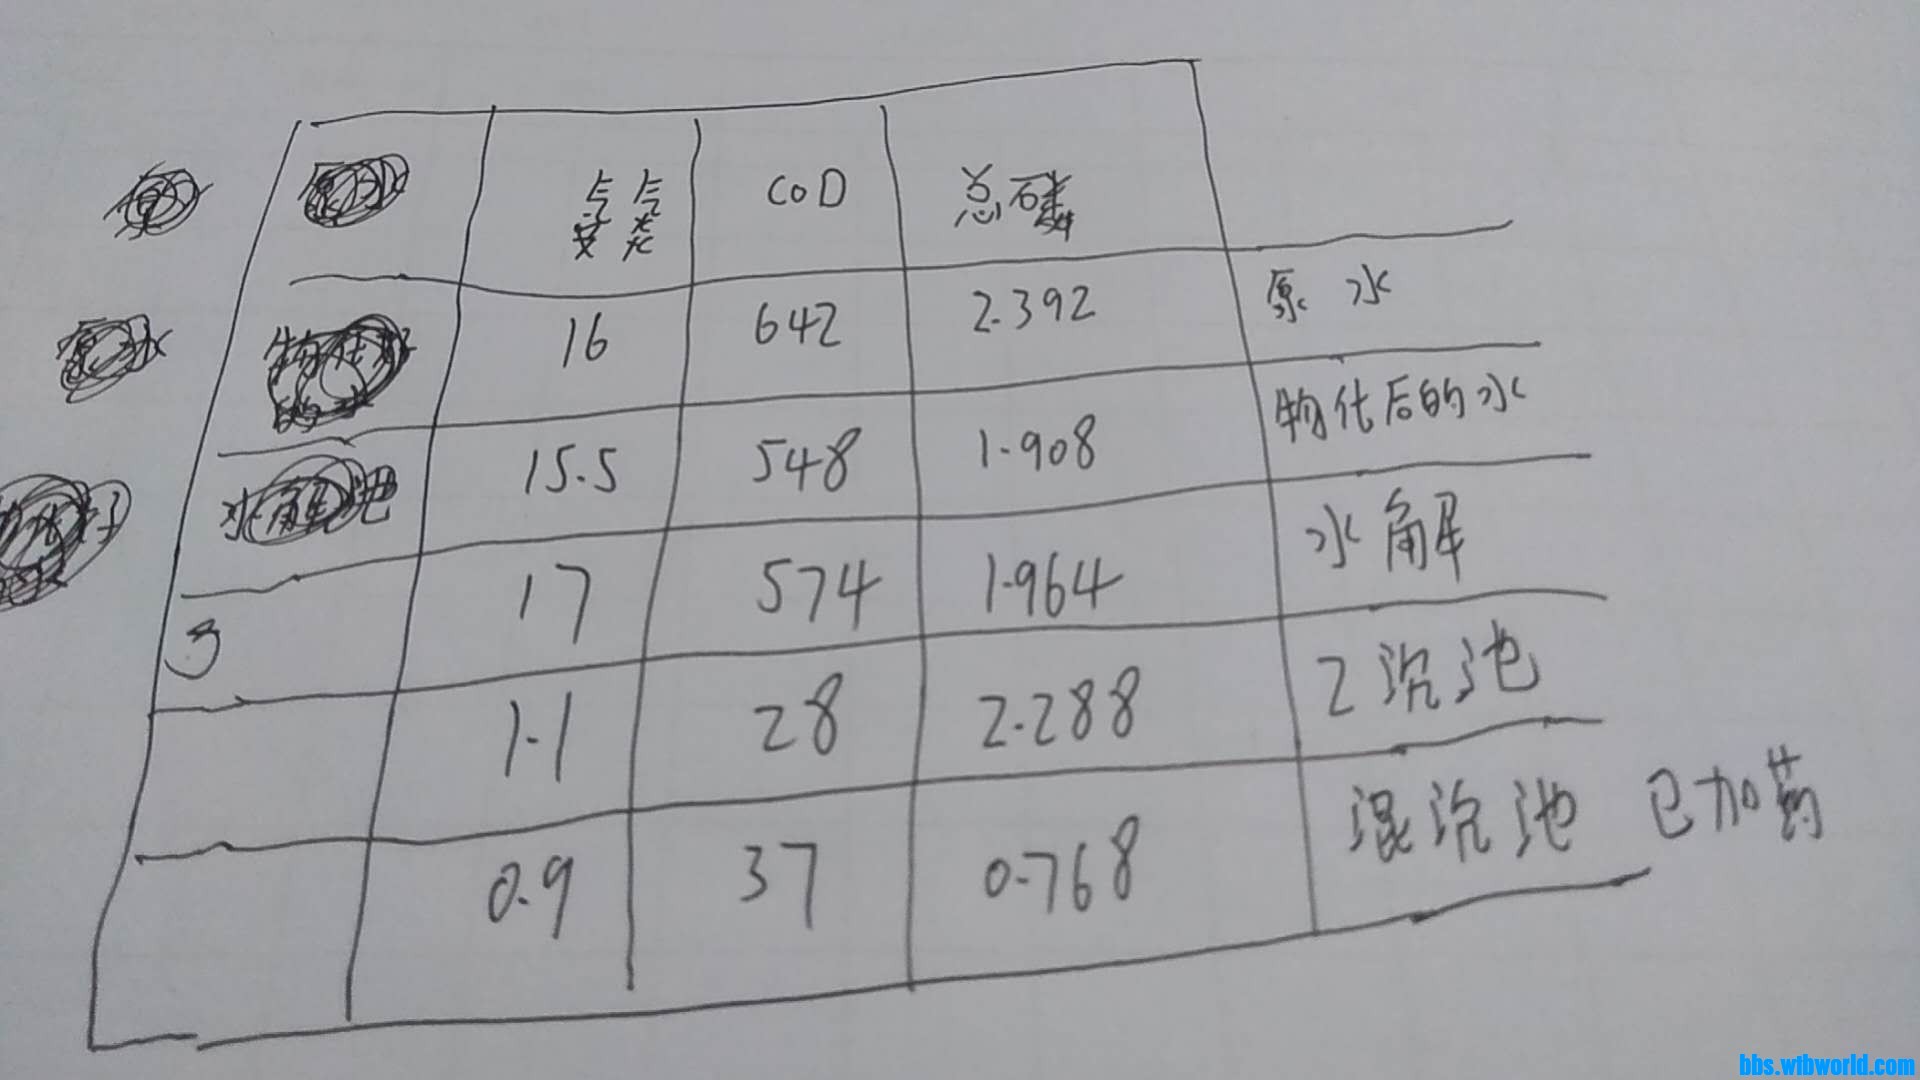 氨氮 COD 总磷
16 642 2.392 原水
15.5 548 1.908 物化后的水
水解池
17 574 1.964 水解
3
1.1 28 2.288 2沉池
0.9 37 0.768 混沉池 已加药
bbs.wtbworld.com